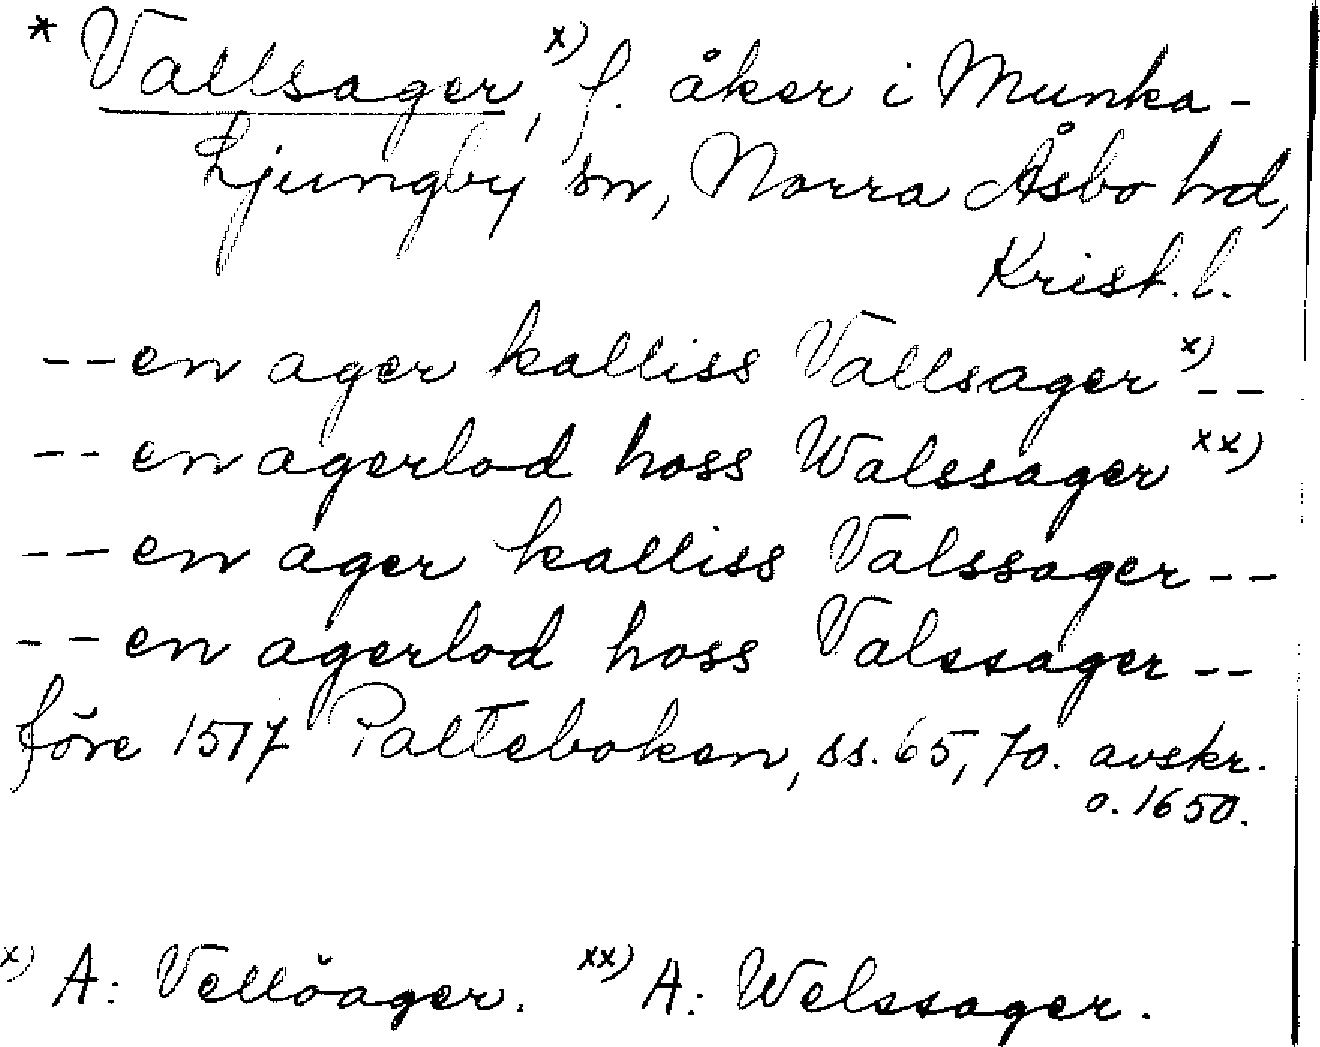 * Vallsager,ˣ⁾ f. åker i Munka-
Ljungby sn, Norra Åsbo hd,
Krist. l.
-- en ager kalliss Vallsagerˣ⁾ --
-- en agerlod hoss Walssagerˣˣ⁾
-- en ager kalliss Valssager --
-- en agerlod hoss Valssager --
före 1517 Palteboken, ss. 65, 70. avskr.
o. 1650.
ˣ⁾ A: Vellöager. ˣˣ⁾ A: Welssager.